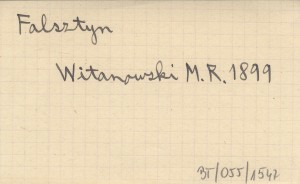 Falsztyn
Witanowski M.R. 1899
BT/055/1542